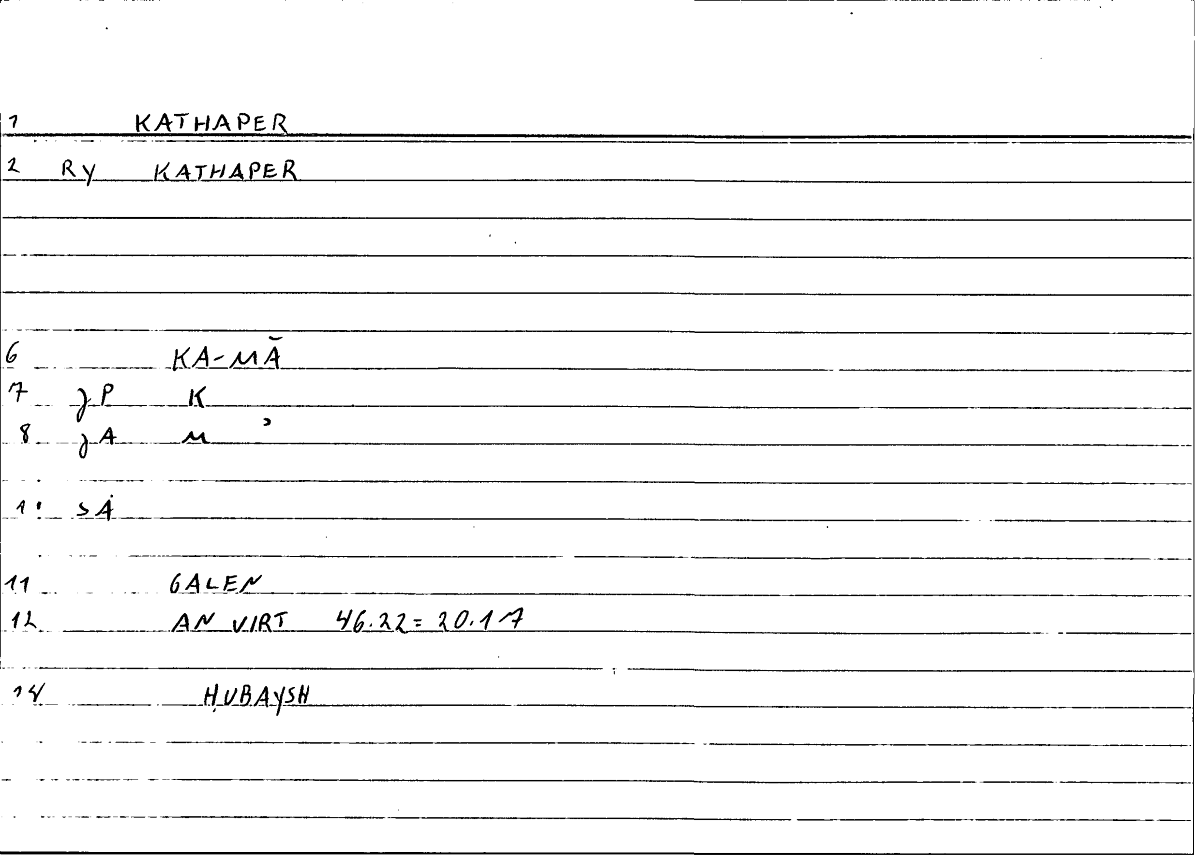 1 KATHAPER
2 Ry KATHAPER
6 KA-MĀ
7 jP K
8 jA M ʾ
1 SȦ
11 GALEN
12 AN VIRT 46.22=20.17
14 ḤUBAYSH